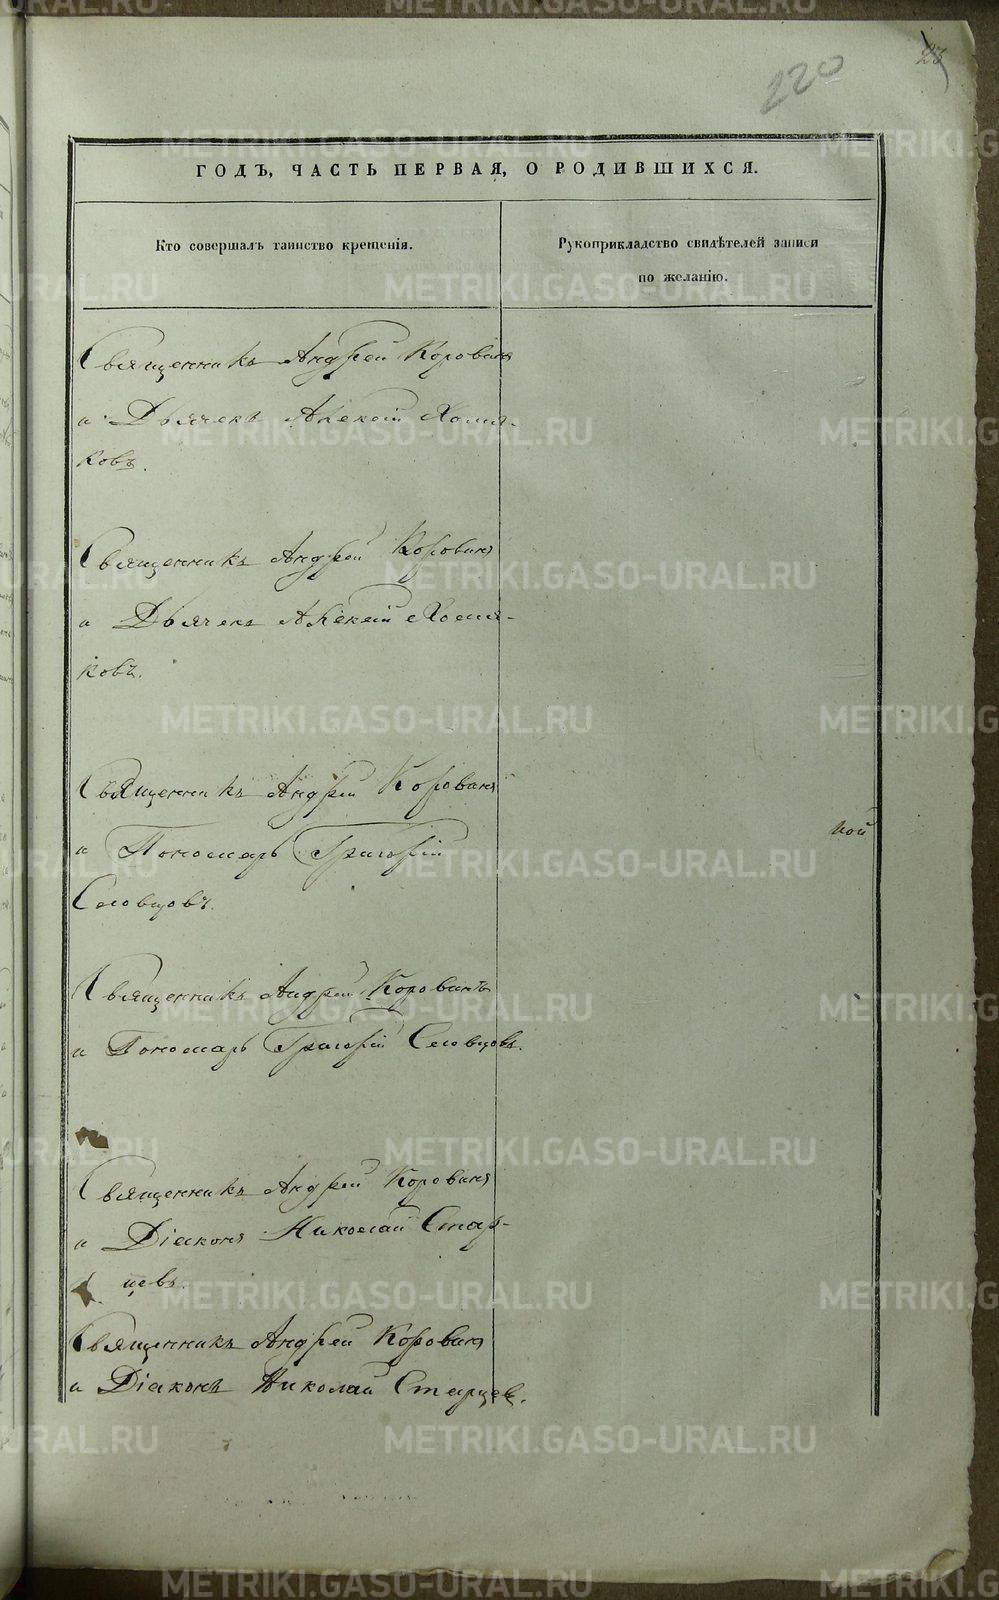 220
23
ГОДЪ, ЧАСТЬ ПЕРВАЯ, О РОДИВШИХСЯ.
Кто совершалъ таинство крещенія.
Рукоприкладство свидѣтелей записи
по желанію.
Священникъ Андрей Коровинъ
и Дьячекъ Алексій Хомя-
ковъ.
Священникъ Андрей Коровинъ
и Дьячекъ Алексій Хомя-
ковъ.
Священникъ Андрей Коровинъ
и Пономарь Григорій
Словцовъ.
Священникъ Андрей Коровинъ
и Пономарь Григорій Словцовъ.
Священникъ Андрей Коровинъ
и Діаконъ Николай Стар-
цевъ.
Священникъ Андрей Коровинъ
и Діаконъ Николай Старцев.
METRIKI.GASO-URAL.RU